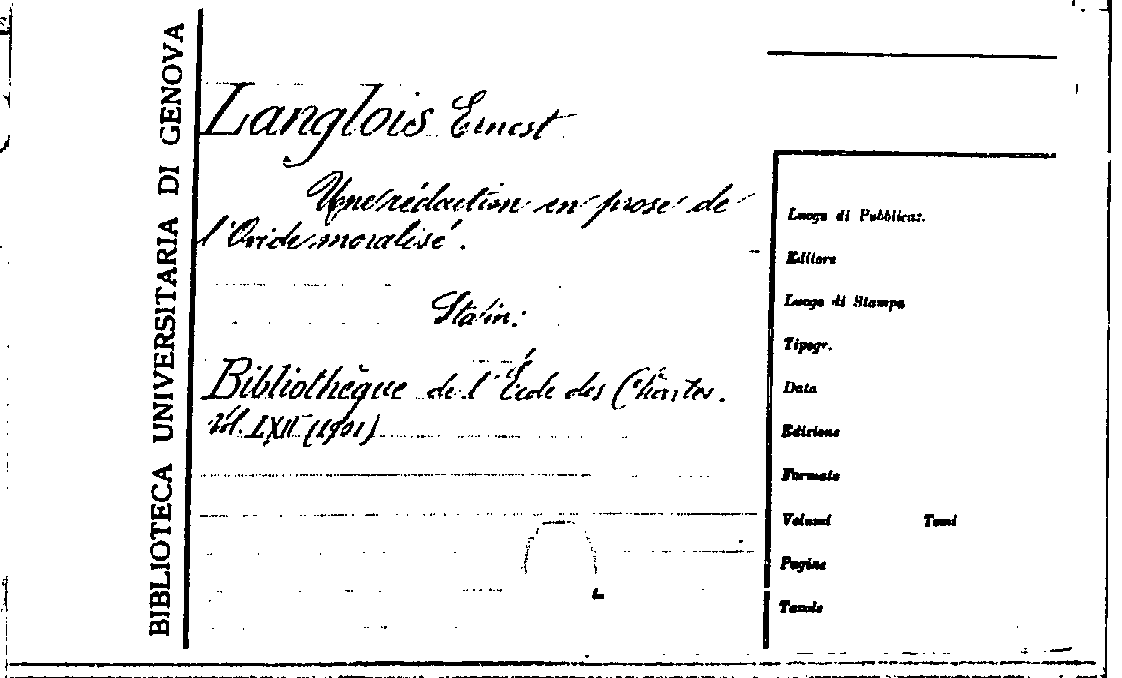 BIBLIOTECA UNIVERSITARIA DI GENOVA
Langlois Ernest
Une rédaction en prose de
l'Ovide moralisé.
Sta in:
Bibliothèque de l'École des Chartes.
vol. LXII (1901)
Luogo di Pubblicaz.
Editore
Luogo di Stampa
Tipogr.
Data
Edizione
Formato
Volumi Tomi
Pagine
Tavole